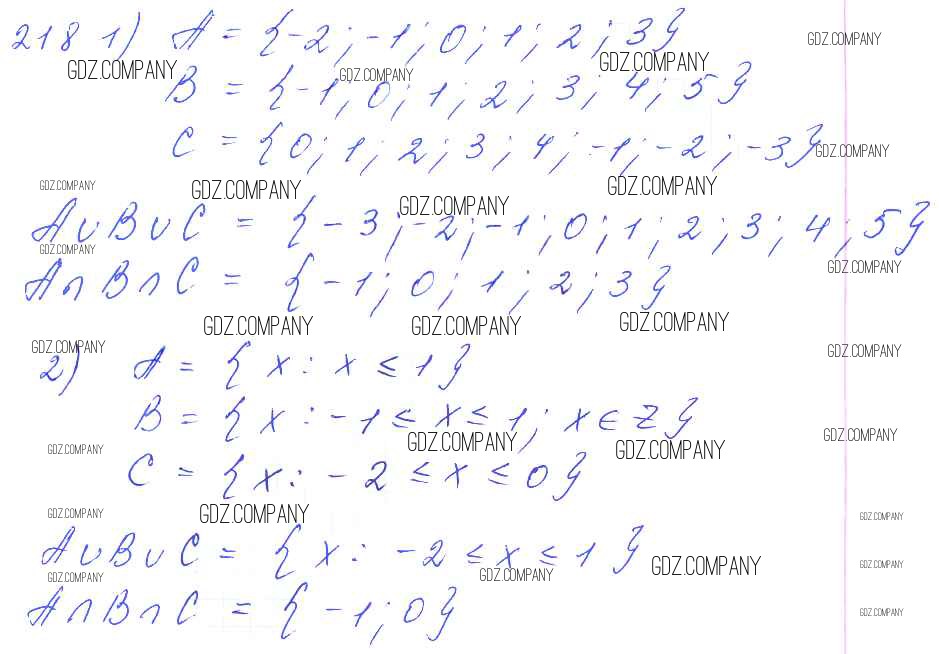 218 1) A = {-2; -1; 0; 1; 2; 3}
GDZ.COMPANY GDZ.COMPANY GDZ.COMPANY GDZ.COMPANY
B = {-1; 0; 1; 2; 3; 4; 5}
C = {0; 1; 2; 3; 4; -1; -2; -3}
GDZ.COMPANY
GDZ.COMPANY GDZ.COMPANY GDZ.COMPANY GDZ.COMPANY
A∪B∪C = {-3; -2; -1; 0; 1; 2; 3; 4; 5}
GDZ.COMPANY GDZ.COMPANY
A∩B∩C = {-1; 0; 1; 2; 3}
GDZ.COMPANY GDZ.COMPANY GDZ.COMPANY
GDZ.COMPANY GDZ.COMPANY
2) A = {x: x ≤ 1}
B = {x: -1 ≤ x ≤ 1; x ∈ Z}
GDZ.COMPANY GDZ.COMPANY GDZ.COMPANY GDZ.COMPANY
C = {x: -2 ≤ x ≤ 0}
GDZ.COMPANY GDZ.COMPANY GDZ.COMPANY
A∪B∪C = {x: -2 ≤ x ≤ 1}
GDZ.COMPANY GDZ.COMPANY GDZ.COMPANY GDZ.COMPANY
A∩B∩C = {-1; 0}
GDZ.COMPANY